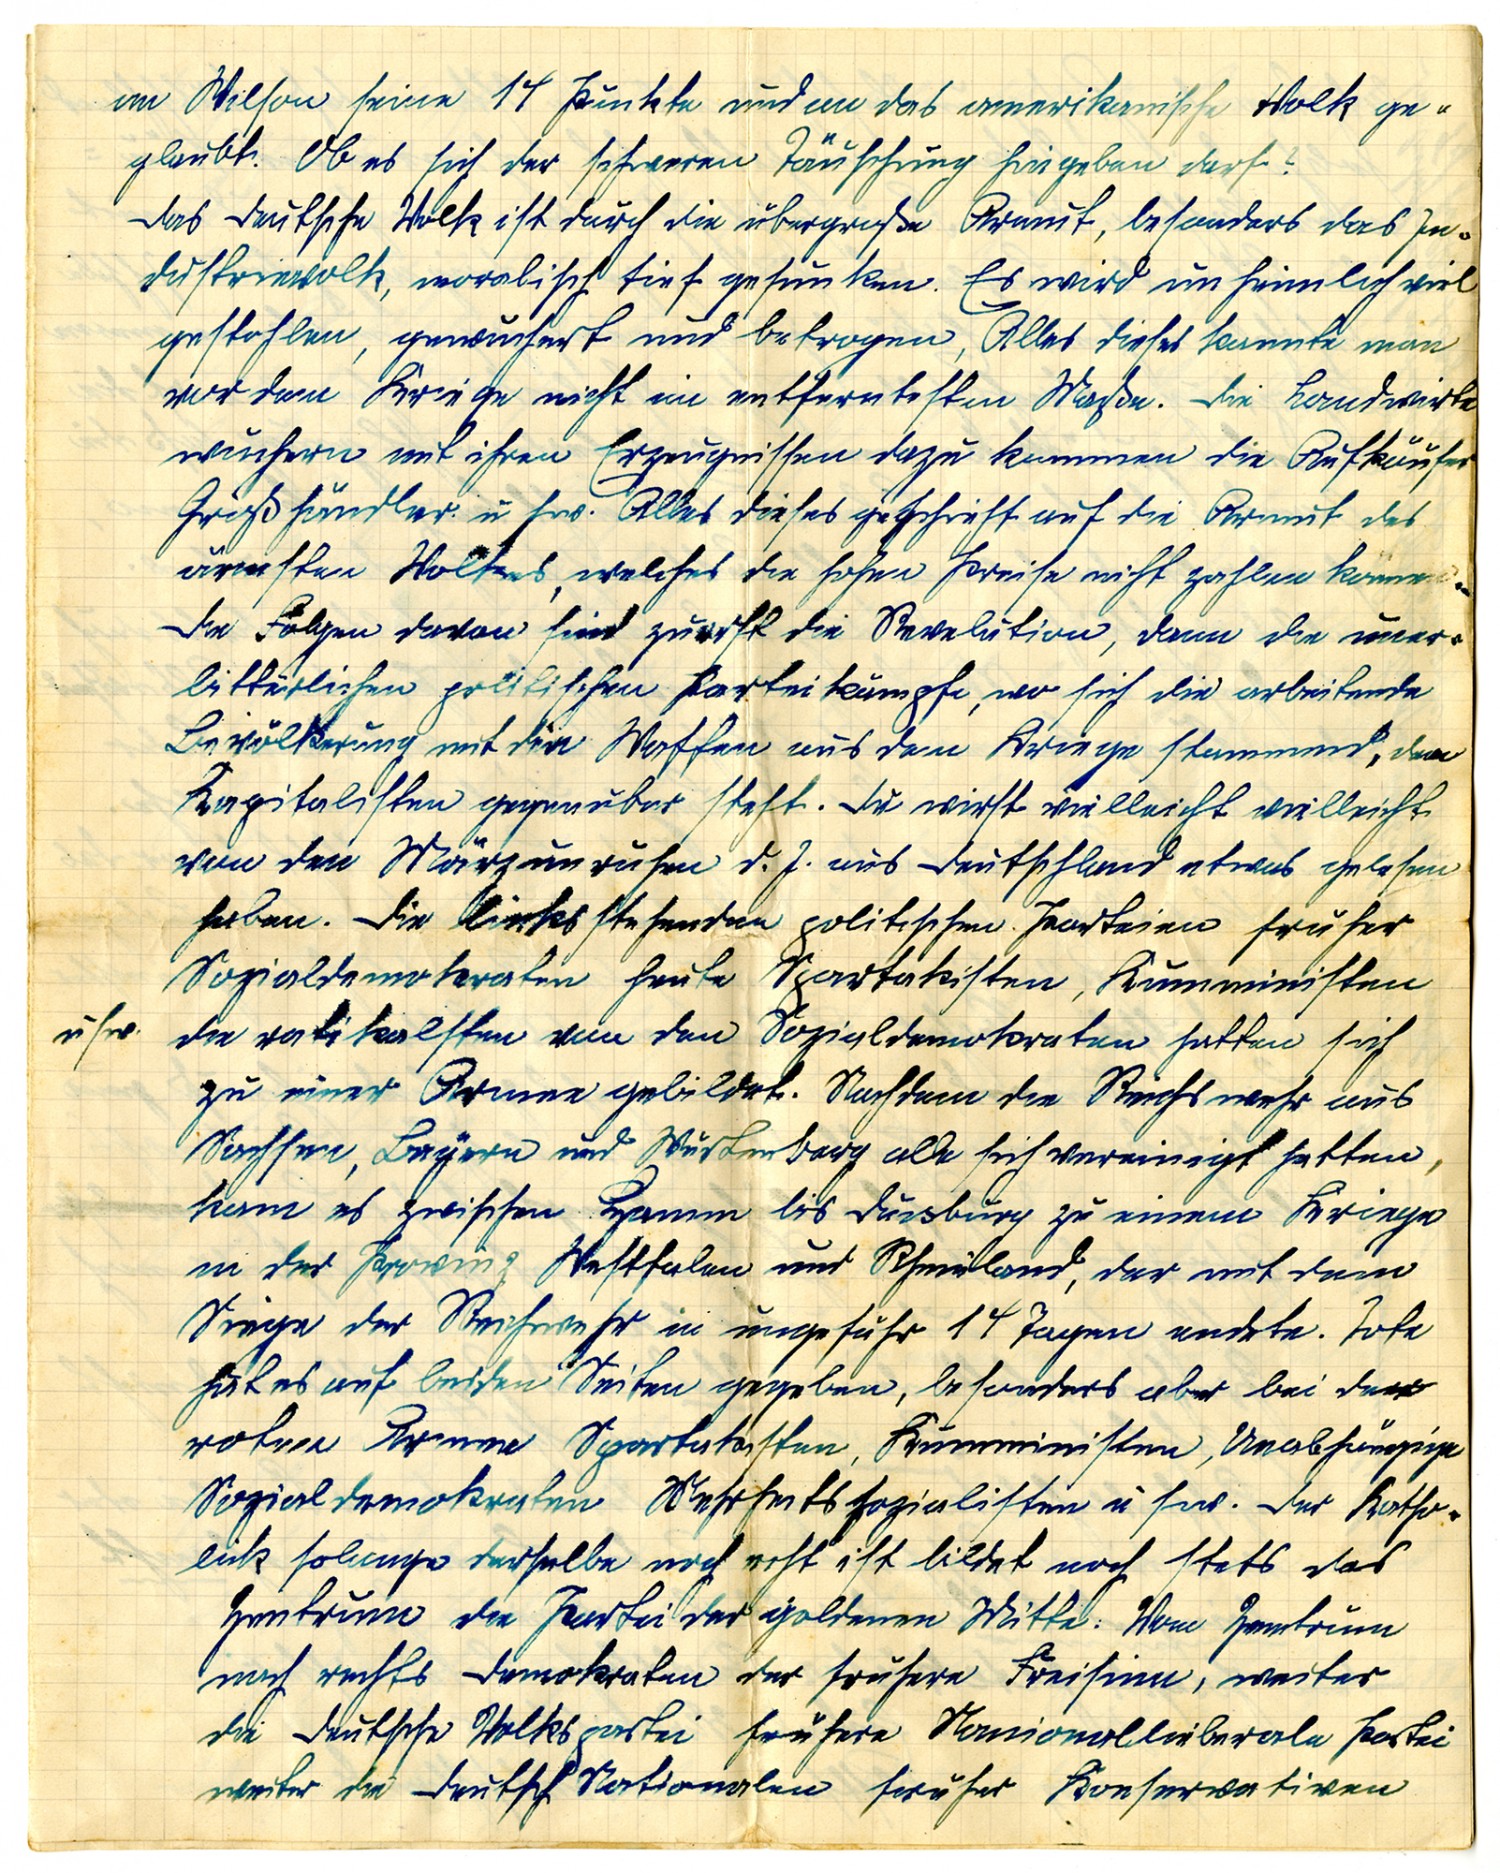 an Wilson seine 14 Punkte und an das amerikanische Volk ge-
glaubt. Ob es sich der schweren Täuschung hingeben darf?
Das deutsche Volk ist durch die übergroße Armut, besonders das In-
dustrievolk, moralisch tief gesunken. Es wird unheimlich viel
gestohlen, gewuchert und betrogen, Alles dieses kannte man
vor dem Kriege nicht im entferntesten Maße. Die Landwirte
wuchern mit ihren Erzeugnissen dazu kommen die Aufkäufer
Großhändler u sw. Alles dieses geschieht auf die Armut des
ärmsten Volkes, welches die hohen Preise nicht zahlen können.
Die Folgen davon sind zuerst die Revolution, dann die uner-
bitterlichen politischen Parteikämpfe, wo sich die arbeitende
Bevölkerung mit den Waffen aus dem Kriege stammend, dem
Kapitalisten gegenüber steht. Du wirst vielleicht vielleicht
von den Märzunruhen d. J. aus Deutschland etwas gelesen
haben. Die linksstehenden politischen Parteien früher
Sozialdemokraten heute Spartakisten, Kumministen
usw. die ratikalsten von den Sozialdemokraten hatten sich
zu einer Armee gebildet. Nachdem die Reichswehr aus
Sachsen, Bayern und Würtemberg alle sich vereinigt hatten,
kam es zwischen Hamm bis Duisburg zu einem Kriege
in der Provinz Westfalen und Rheinland, der mit dem
Siege der Reichwehr in ungefähr 14 Tagen endete. Tote
hat es auf beiden Seiten gegeben, besonders aber bei der
roten Armee Spartakisten, Kumministen, Unabhängige
Sozialdemokraten Mehrheitssozialisten u sw. Der Katho-
lik solange derselbe noch echt ist bildet noch stets das
Zentrum die Partei der goldenen Mitte. Vom Zentrum
nach rechts Demokraten der frühere Freisinn, weiter
die deutsche Volkspartei frühere Nanionallieberale Partei
weiter die deutsch Nationalen früher Konservativen